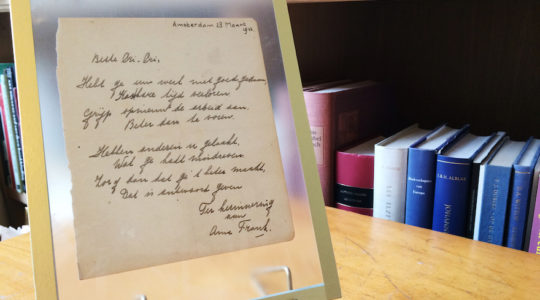 Amsterdam 28 Maart
1942
Beste Cri-Cri,
Hebt ge uw werk niet goed gedaan,
Kostbre tijd verloren
Grijp opnieuw de arbeid aan.
Beter dan te voren.
Hebben anderen u gelaakt,
Wat ge hebt misdreven
Zorg dan dat ge 't beter maakt,
Dat is antwoord geven
Ter herinnering
aan
Anne Frank.
Boekverkopers van
Europa
J.B.H. ALBLAS
JOHANNES